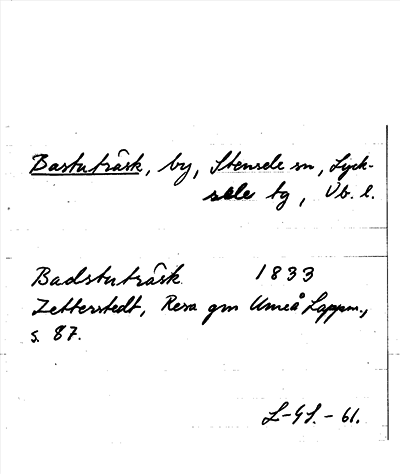 Bastuträsk, by, Stensele sn, Lyck-
sele tg, Vb. l.
Badstuträsk 1833
Zetterstedt, Resa gm Umeå Lappm.,
s. 87.
L-GS. - 61.